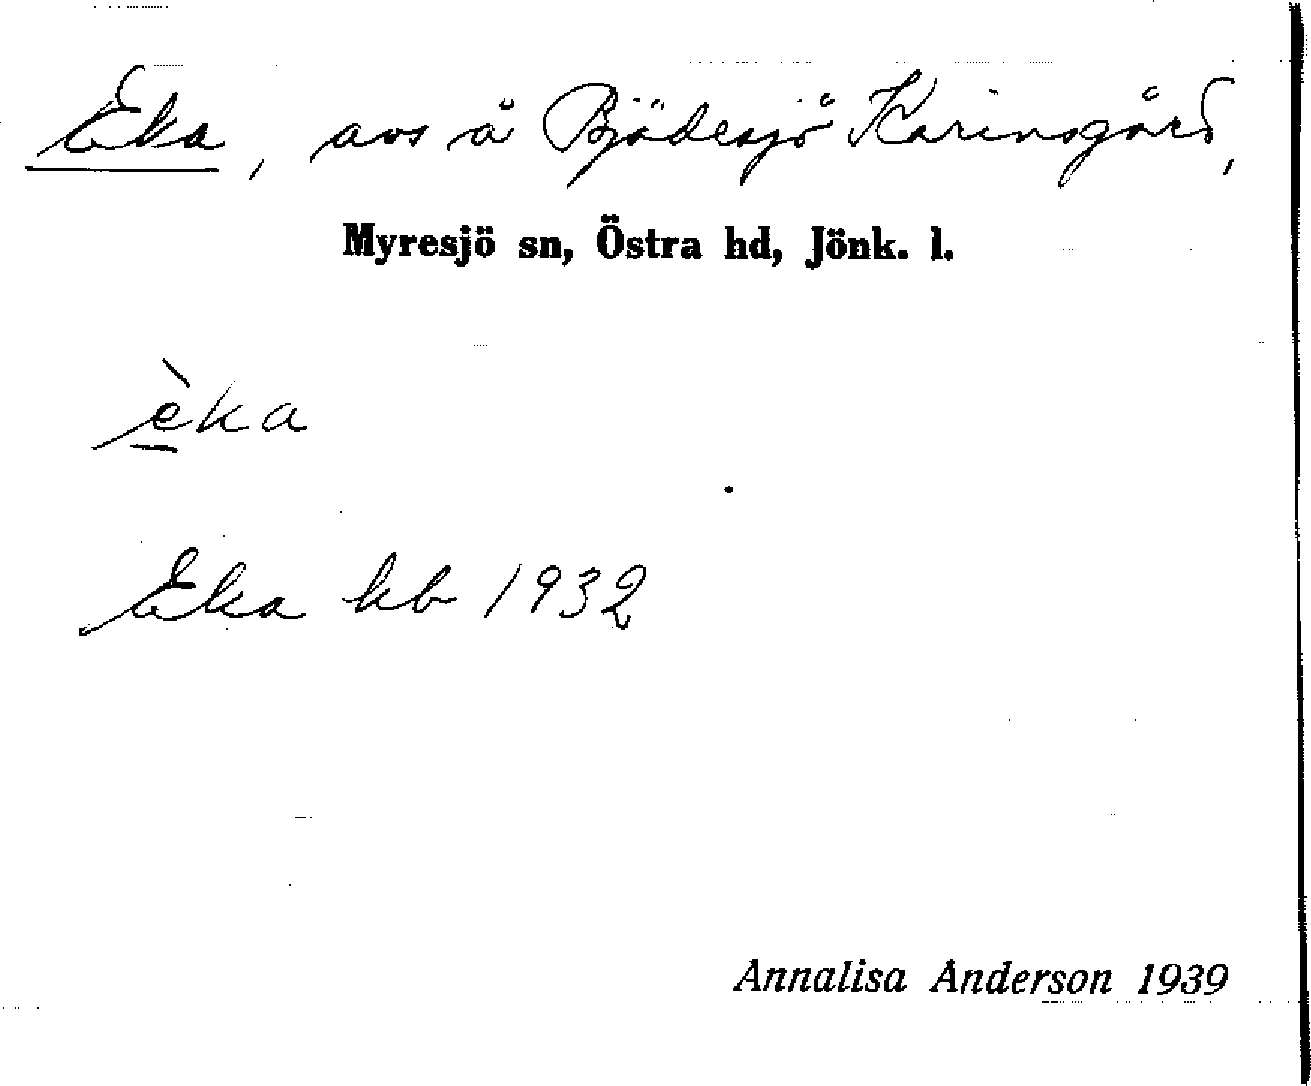 Eka, avs å Bjädesjö Karinsgård,
Myresjö sn, Östra hd, Jönk. l.
èka
Eka kb 1932
Annalisa Anderson 1939